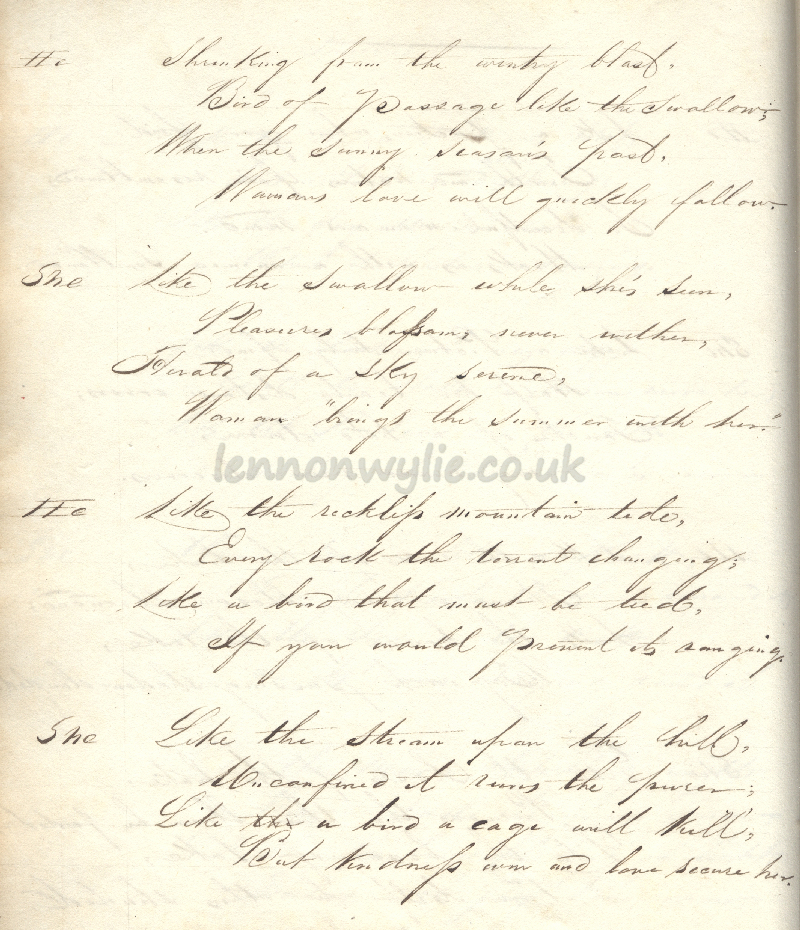 He Shrinking from the wintry blast,
Bird of passage like the swallow;
When the sunny season's past,
Womans love will quickly follow.
She Like the swallow while she's seen,
Pleasures blossom, never wither,
Herald of a sky serene,
Woman "brings the summer with her."
lennonwylie.co.uk
He Like the reckless mountain tide,
Every rock the torrent changing;
Like a bird that must be tied,
If you would prevent its ranging.
She Like the stream upon the hill,
Unconfined it runs the purer;
Like the a bird a cage will kill,
But kindness win and love secure her.